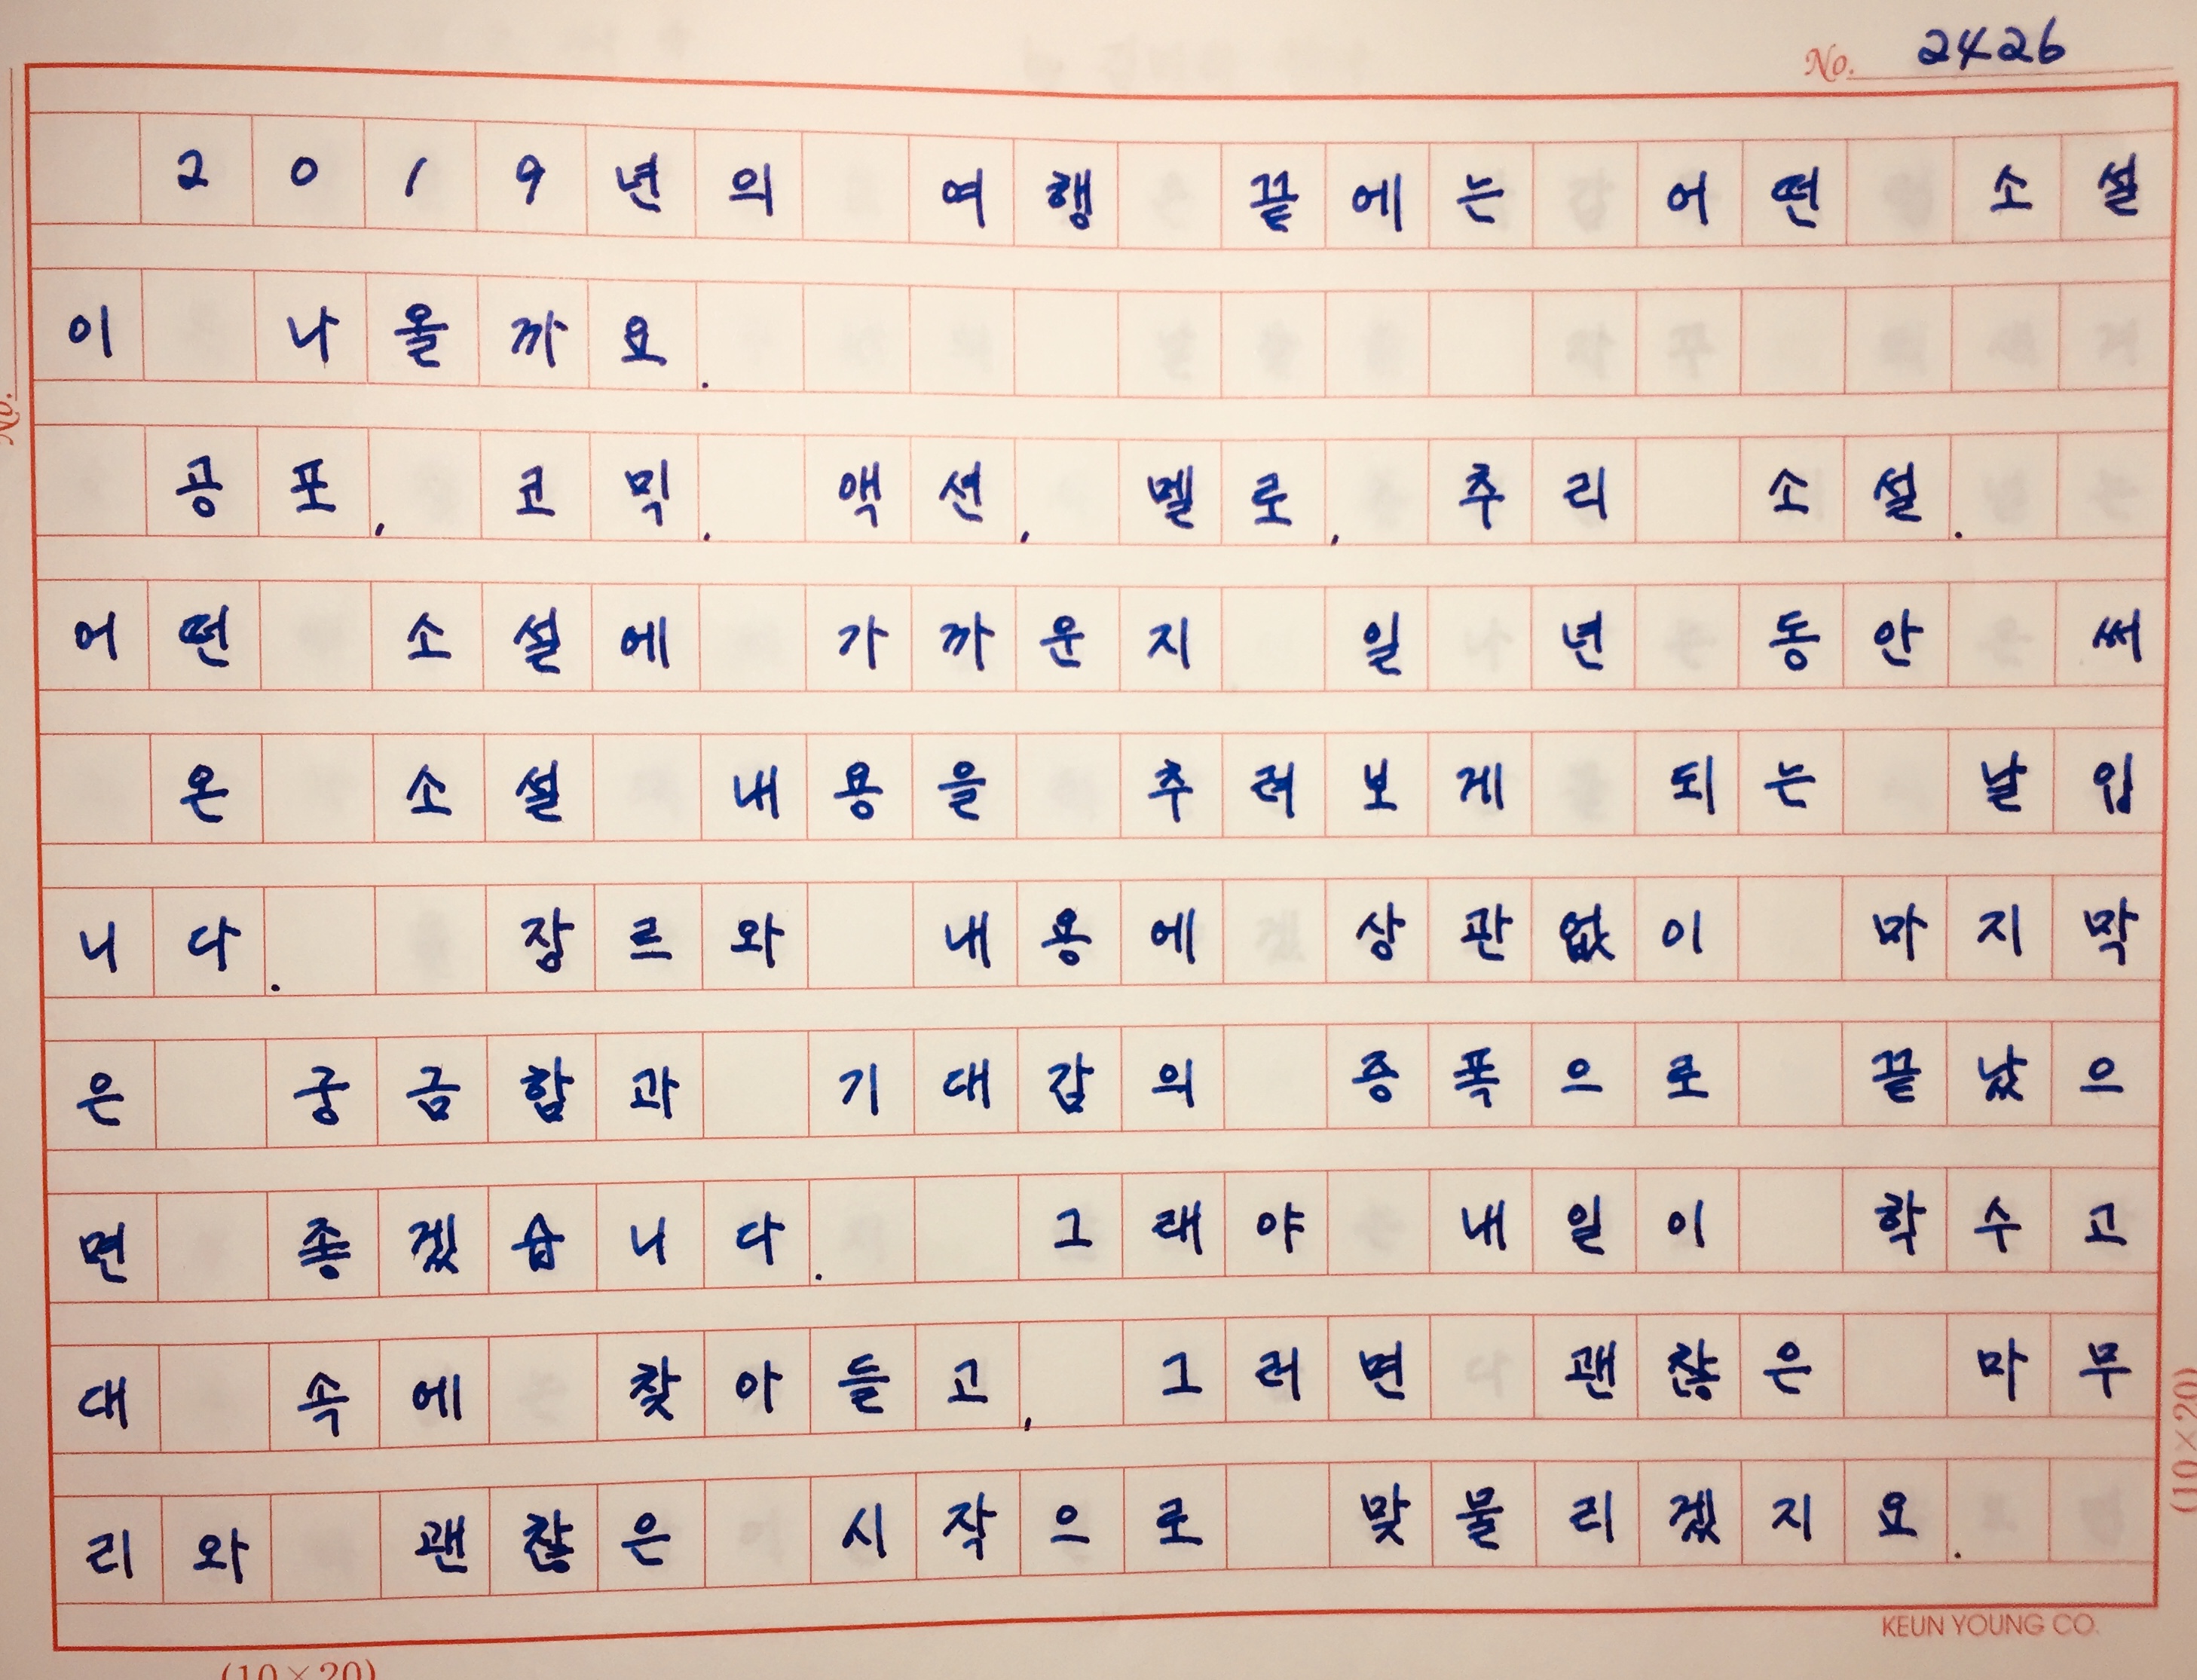 No. 2426
2019년의 여행 끝에는 어떤 소설
이 나올까요.
공포, 코믹. 액션, 멜로, 추리 소설.
어떤 소설에 가까운지 일 년 동안 써
온 소설 내용을 추려보게 되는 날입
니다. 장르와 내용에 상관없이 마지막
은 궁금함과 기대감의 증폭으로 끝났으
면 좋겠습니다. 그래야 내일이 학수고
대 속에 찾아들고, 그러면 괜찮은 마무
리와 괜찮은 시작으로 맞물리겠지요.
KEUN YOUNG CO.
(10×20)
(10×20)
No.